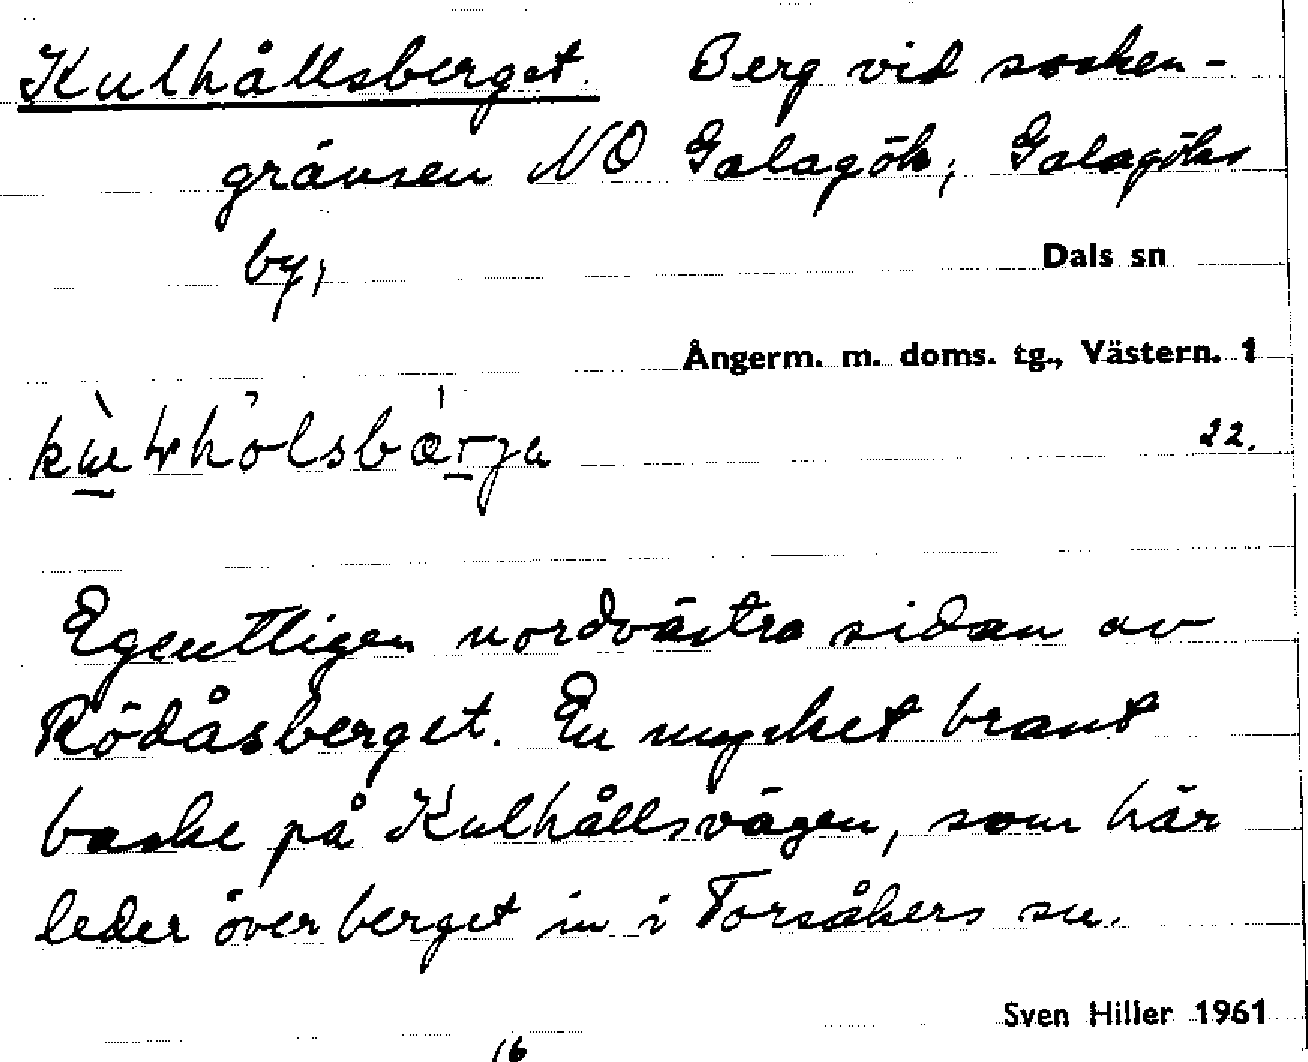 Kulhållsberget. Berg vid socken-
gränsen NO Galagök, Galagöks
by,
Dals sn
Ångerm. m. doms. tg., Västern. 1
22.
Egentligen nordvästra sidan av
Rödåsberget. En mycket brant
backe på Kulhållsvägen, som här
leder över berget in i Torsåkers sn.
Sven Hiller 1961
16